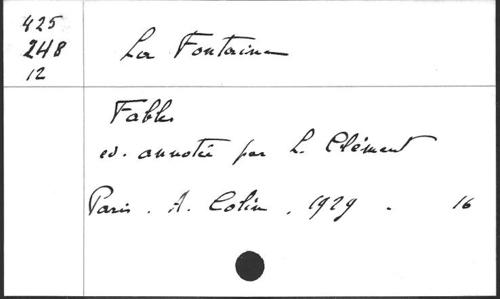 425
248
12
La Fontaine
Fables
ed. annotée par L. Clément
Paris. A. Colin. 1929. 16